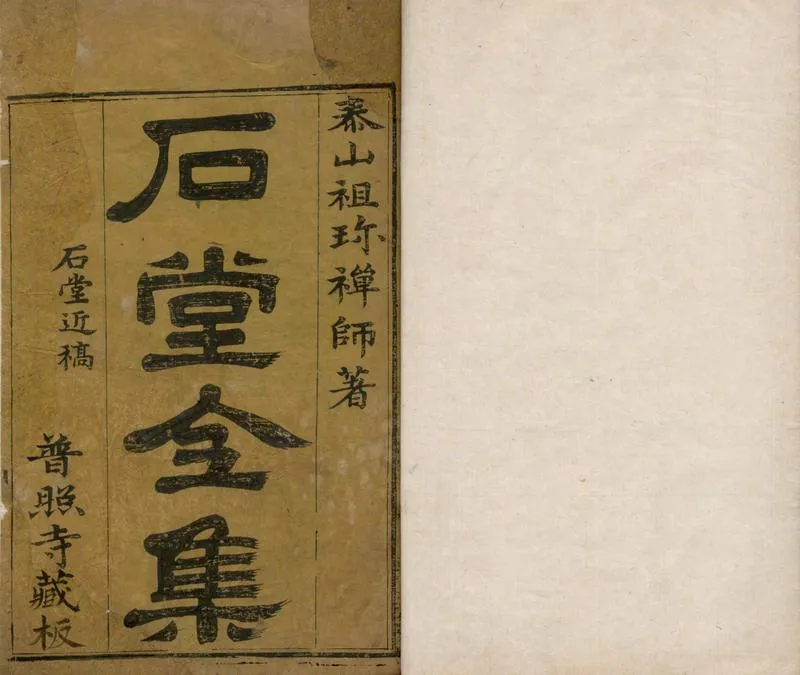 泰山祖珎禪師著
石堂全集
石堂近稿
普照寺藏板